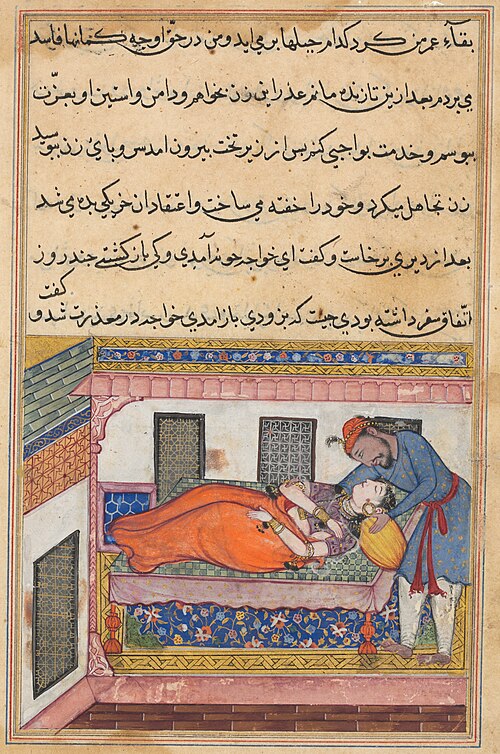 بقاء عمر من کرد کدام حیلها بر می آید و من در حق او چه کمانها فاسد
می بردم بعد ازین تا زنده مانم عذر این زن بخواهم و دامن و آستین او بعزت
ببوسم و خدمت بواجبی کنم پس از زیر تخت بیرون امد سر و پای زن ببوسید
زن تجاهل میکرد و خود را خفته می ساخت و اعتقاد آن خر یکی بده می شد
بعد از دیری برخاست و گفت ای خواجه خوش آمدی و کی باز گشتی چند روز
اتفاق سفر داشته بودی چیست که بزودی باز امدی خواجه در معذرت شد و
گفت